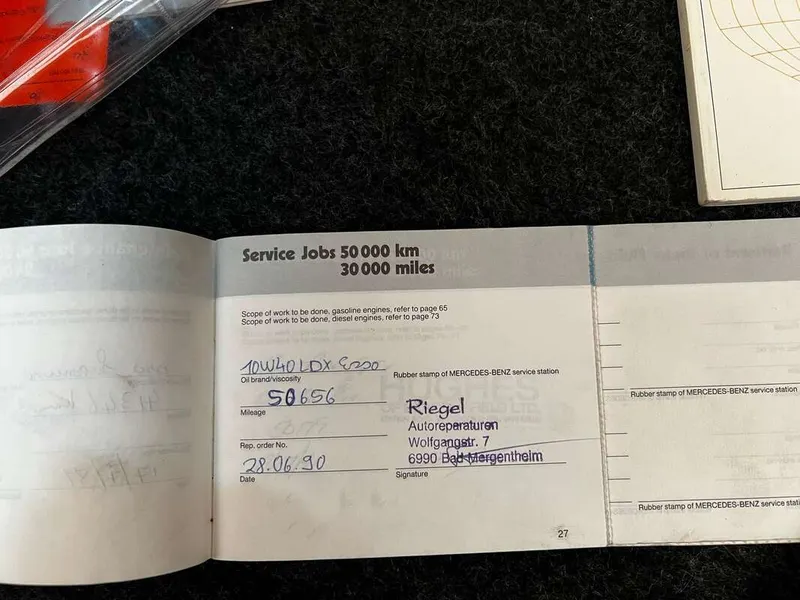 Service Jobs 50 000 km
30 000 miles
Scope of work to be done, gasoline engines, refer to page 65
Scope of work to be done, diesel engines, refer to page 73
10W40 LDX Esso
Oil brand/viscosity
Rubber stamp of MERCEDES-BENZ service station
50656
Mileage
Riegel
Autoreparaturen
Wolfgangstr. 7
6990 Bad Mergentheim
Rep. order No.
28.06.90
Date
Signature
27
Rubber stamp of MERCEDES-BENZ service station
Rubber stamp of MERCEDES-BENZ service stati